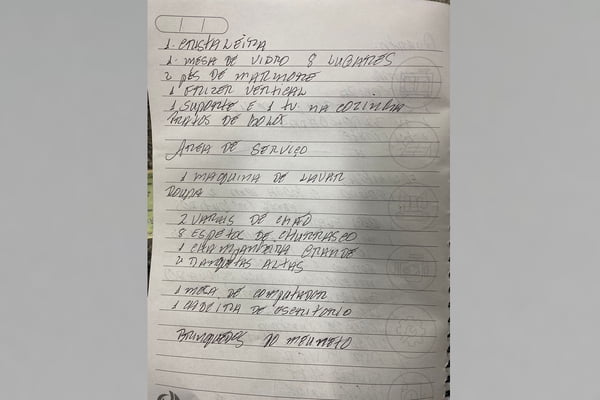 1. CRISTALEIRA
1. MESA DE VIDRO 8 LUGARES
2 PÉS DE MARMORE
1 FRIZER VERTICAL
1 SUPORTE E 1 TV. NA COZINHA
PRATOS DE BOLOS
ÁREA DE SERVIÇO
1 MAQUINA DE LAVAR
ROUPA
2 VARAIS DE CHÃO
8 ESPETOS DE CHURRASCO
1 CHAMPANHEIRA GRANDE
2 BANQUETAS ALTAS
1 MESA DE COMPUTADOR
1 CADEIRA DE ESCRITORIO
BRINQUEDOS DO MEU NETO